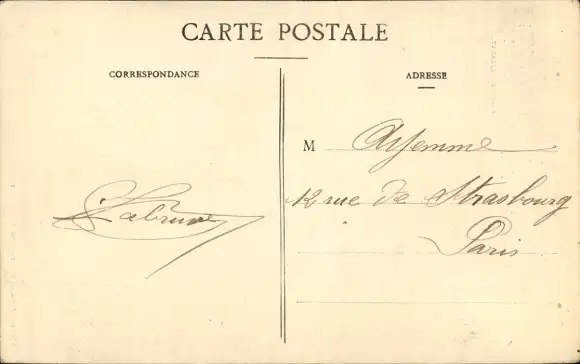 CARTE POSTALE
CORRESPONDANCE
ADRESSE
M
12 rue de Strasbourg
Paris